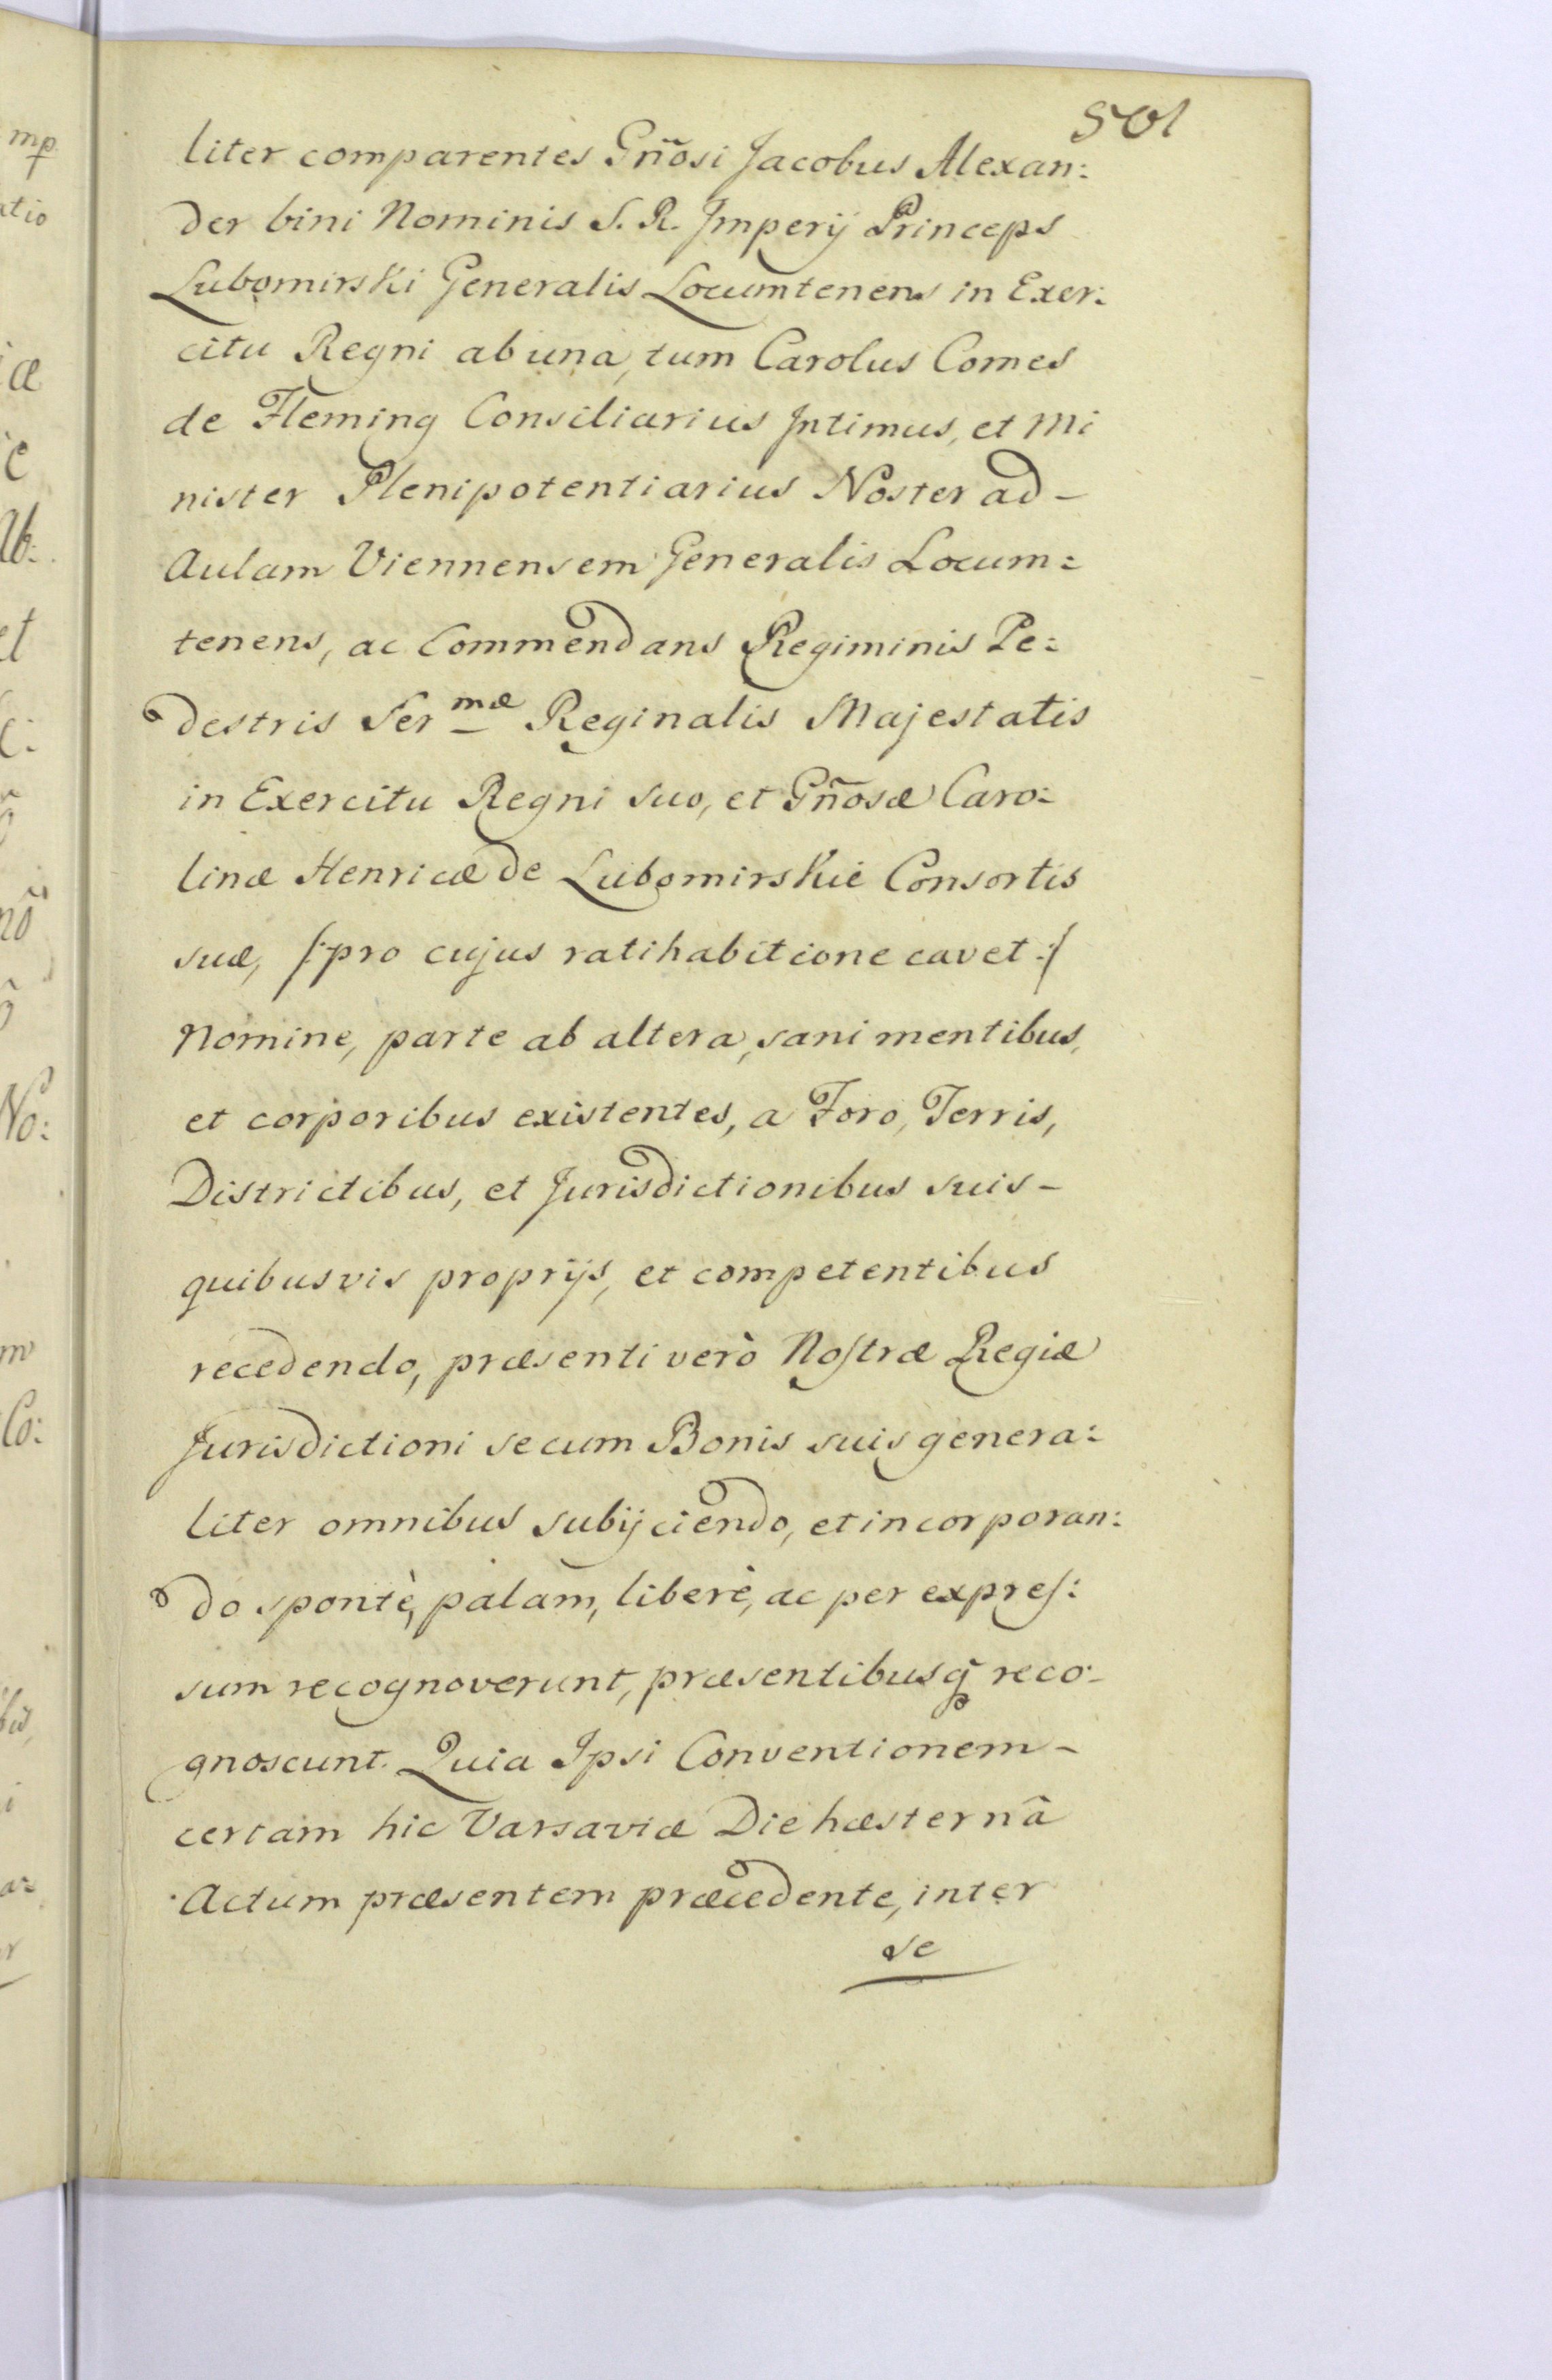 501
liter comparentes Gños̃i Jacobus Alexan:
der bini Nominis S. R. Imperÿ Princeps
Lubomirski Generalis Locumtenens in Exer:
citu Regni ab una, tum Carolus Comes
de Fleming Consiliarius Intimus, et Mi
nister Plenipotentiarius Noster ad-
Aulam Viennensem Generalis Locum=
tenens, ac Commendans Regiminis Pe:
destris Ser^mæ Reginalis Majestatis
in Exercitu Regni suo, et Gñosæ Caro:
linæ Henricæ de Lubomirskie Consortis
suæ, /:pro cujus ratihabitione cavet:/
Nomine, parte ab altera, sani mentibus,
et corporibus existentes, a Foro, Terris,
Districtibus, et Jurisdictionibus suis-
quibusvis proprÿs, et competentibus
recedendo, præsenti verò Noſtræ Regiæ
Jurisdictioni secum Bonis suis genera:
liter omnibus subÿciendo, et incorporan:
do spontè, palam, liberè, ac per expreſ:
sum recognoverunt, præsentibusq̃ reco-
gnoscunt. Quia Ipsi Conventionem-
certam hic Varsaviæ Die hæsternâ
Actum præsentem præcedente, inter
se
mp
atio
iæ
ie
Ab:
et
c:
nõ
No:
m
Co:
i
a:
r